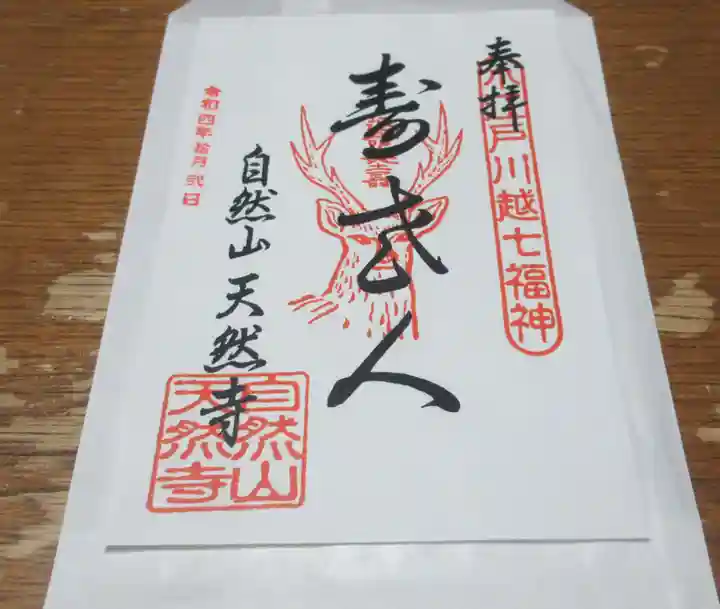 奉拝
小江戸川越七福神
寿老人
自然山 天然寺
令和四年拾月弐日
自然山
天然寺